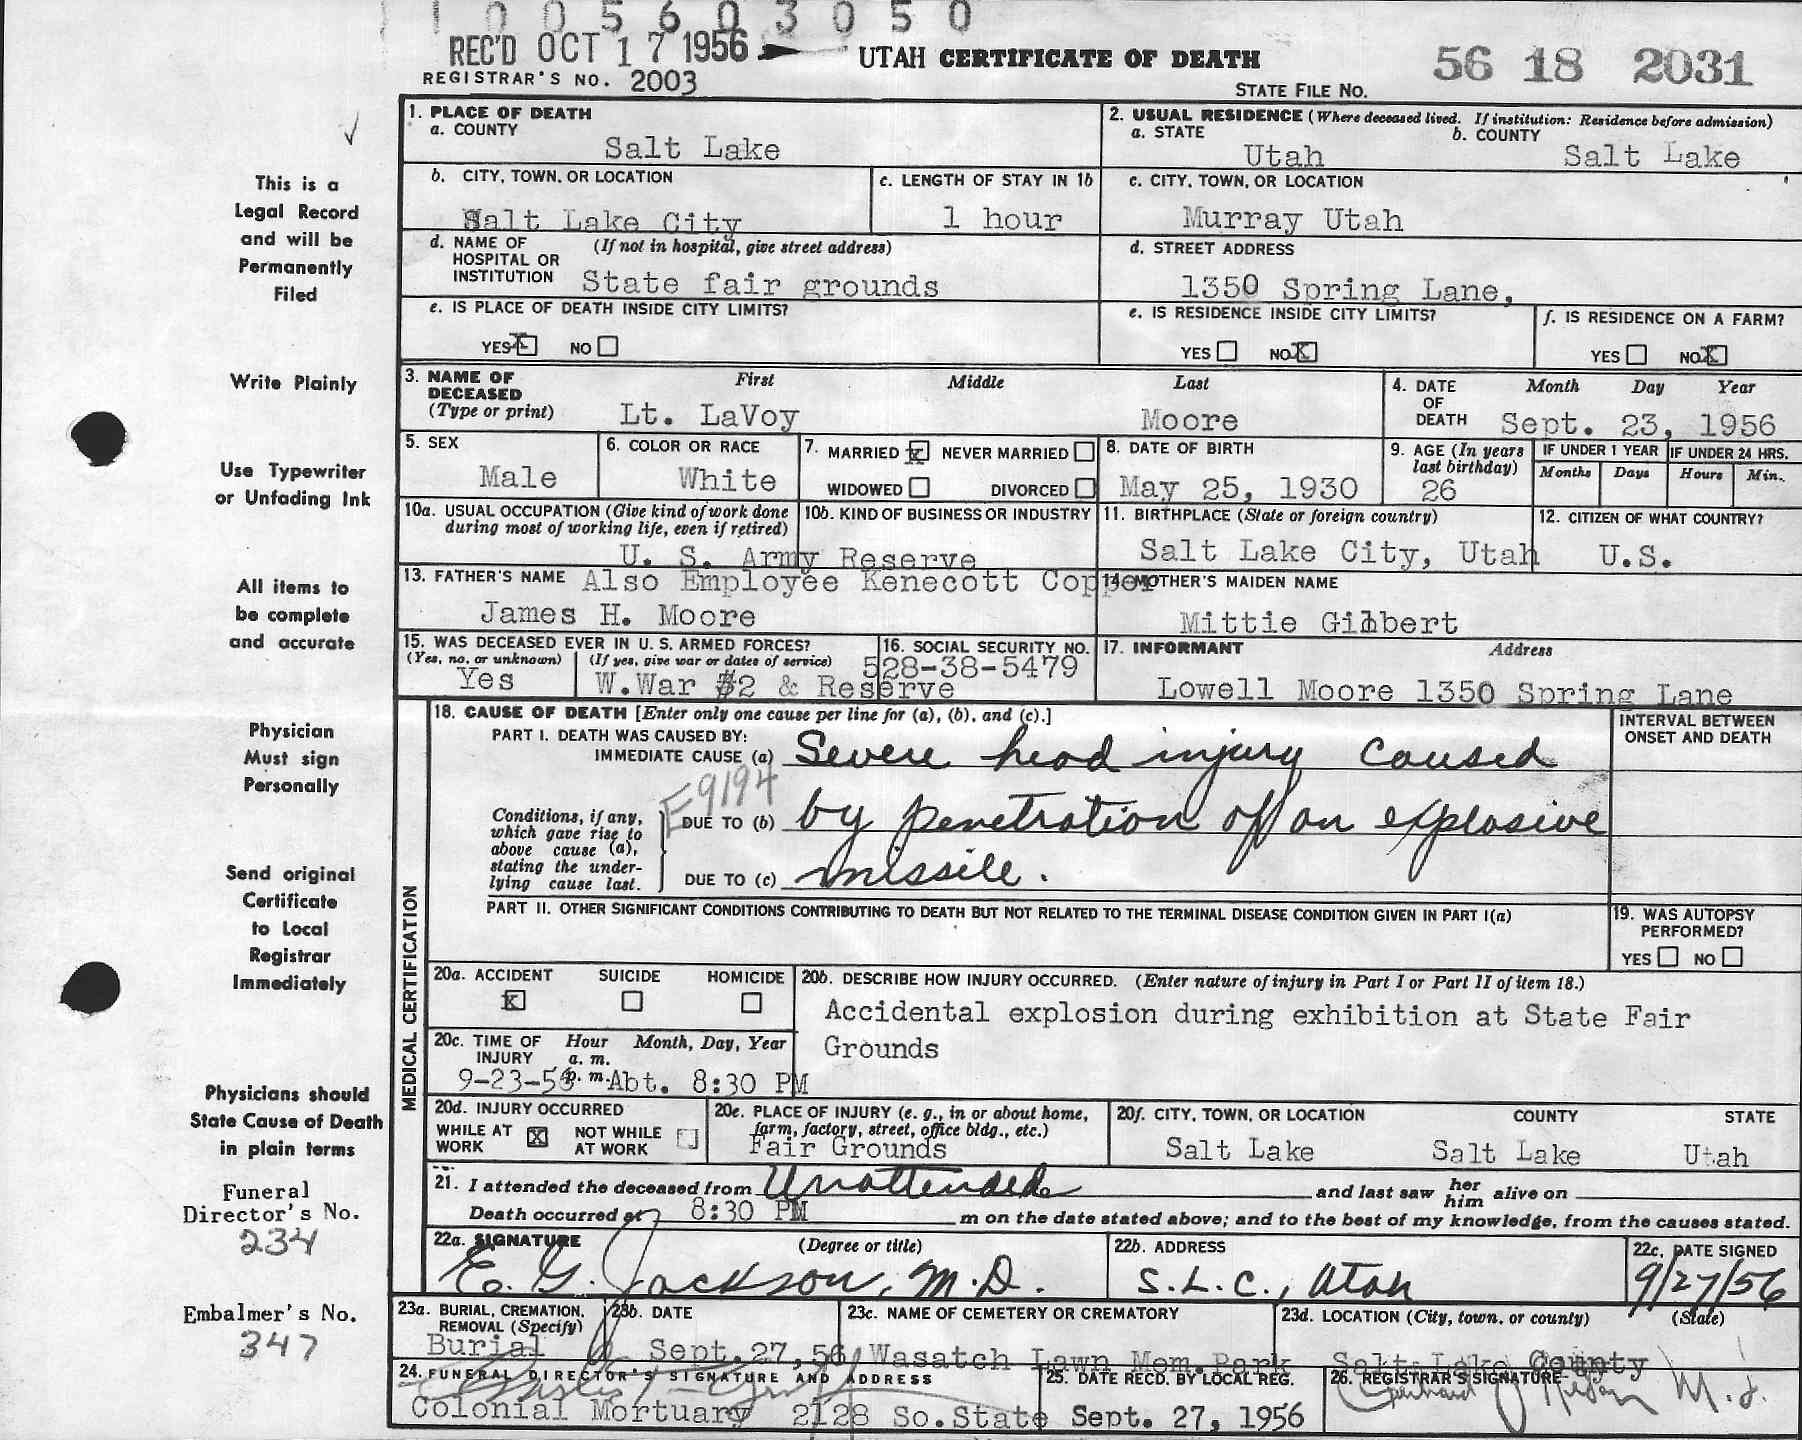 1 0 0 5 6 0 3 0 5 0
REC'D OCT 17 1956
UTAH CERTIFICATE OF DEATH
56 18 2031
REGISTRAR'S NO. 2003
STATE FILE NO.
This is a
Legal Record
and will be
Permanently
Filed
Write Plainly
Use Typewriter
or Unfading Ink
All items to
be complete
and accurate
Physician
Must sign
Personally
Send original
Certificate
to Local
Registrar
Immediately
Physicians should
State Cause of Death
in plain terms
Funeral
Director's No.
234
Embalmer's No.
347
1. PLACE OF DEATH
a. COUNTY
Salt Lake
2. USUAL RESIDENCE (Where deceased lived. If institution: Residence before admission)
a. STATE b. COUNTY
Utah Salt Lake
b. CITY, TOWN, OR LOCATION
Salt Lake City
c. LENGTH OF STAY IN 1b
1 hour
c. CITY, TOWN, OR LOCATION
Murray Utah
d. NAME OF (If not in hospital, give street address)
HOSPITAL OR
INSTITUTION State fair grounds
d. STREET ADDRESS
1350 Spring Lane,
e. IS PLACE OF DEATH INSIDE CITY LIMITS?
YES X NO
e. IS RESIDENCE INSIDE CITY LIMITS?
YES NO X
f. IS RESIDENCE ON A FARM?
YES NO X
3. NAME OF First Middle Last
DECEASED
(Type or print) Lt. LaVoy Moore
4. DATE Month Day Year
OF
DEATH Sept. 23, 1956
5. SEX
Male
6. COLOR OR RACE
White
7. MARRIED X NEVER MARRIED
WIDOWED DIVORCED
8. DATE OF BIRTH
May 25, 1930
9. AGE (In years
last birthday)
26
IF UNDER 1 YEAR
Months Days
IF UNDER 24 HRS.
Hours Min.
10a. USUAL OCCUPATION (Give kind of work done
during most of working life, even if retired)
10b. KIND OF BUSINESS OR INDUSTRY
U. S. Army Reserve
Also Employee Kenecott Copper
11. BIRTHPLACE (State or foreign country)
Salt Lake City, Utah
12. CITIZEN OF WHAT COUNTRY?
U.S.
13. FATHER'S NAME
James H. Moore
14. MOTHER'S MAIDEN NAME
Mittie Gilbert
15. WAS DECEASED EVER IN U. S. ARMED FORCES?
(Yes, no, or unknown) (If yes, give war or dates of service)
Yes W.War #2 & Reserve
16. SOCIAL SECURITY NO.
528-38-5479
17. INFORMANT Address
Lowell Moore 1350 Spring Lane
MEDICAL CERTIFICATION
18. CAUSE OF DEATH [Enter only one cause per line for (a), (b), and (c).]
INTERVAL BETWEEN
ONSET AND DEATH
PART I. DEATH WAS CAUSED BY:
IMMEDIATE CAUSE (a) Severe head injury caused
E9194
Conditions, if any,
which gave rise to
above cause (a),
stating the under-
lying cause last.
DUE TO (b) by penetration of an explosive
DUE TO (c) missile.
PART II. OTHER SIGNIFICANT CONDITIONS CONTRIBUTING TO DEATH BUT NOT RELATED TO THE TERMINAL DISEASE CONDITION GIVEN IN PART I(a)
19. WAS AUTOPSY
PERFORMED?
YES NO
20a. ACCIDENT SUICIDE HOMICIDE
X
20b. DESCRIBE HOW INJURY OCCURRED. (Enter nature of injury in Part I or Part II of item 18.)
Accidental explosion during exhibition at State Fair
Grounds
20c. TIME OF Hour Month, Day, Year
INJURY a. m.
p. m.
9-23-56 Abt. 8:30 PM
20d. INJURY OCCURRED
WHILE AT WORK X NOT WHILE AT WORK
20e. PLACE OF INJURY (e. g., in or about home,
farm, factory, street, office bldg., etc.)
Fair Grounds
20f. CITY, TOWN, OR LOCATION COUNTY STATE
Salt Lake Salt Lake Utah
21. I attended the deceased from Unattended and last saw her him alive on
Death occurred at 8:30 PM m on the date stated above; and to the best of my knowledge, from the causes stated.
22a. SIGNATURE (Degree or title)
E. G. Jackson, M.D.
22b. ADDRESS
S.L.C., Utah
22c. DATE SIGNED
9/27/56
23a. BURIAL, CREMATION,
REMOVAL (Specify)
Burial
23b. DATE
Sept.27,56
23c. NAME OF CEMETERY OR CREMATORY
Wasatch Lawn Mem.Park
23d. LOCATION (City, town, or county) (State)
Salt Lake County
24. FUNERAL DIRECTOR'S SIGNATURE AND ADDRESS
Colonial Mortuary 2128 So.State
25. DATE RECD. BY LOCAL REG.
Sept. 27, 1956
26. REGISTRAR'S SIGNATURE